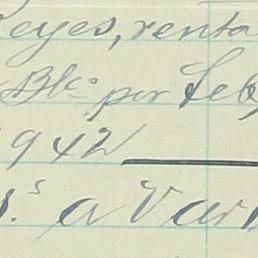 Reyes, renta
Blk. por Feb,
1942
s. a Vari